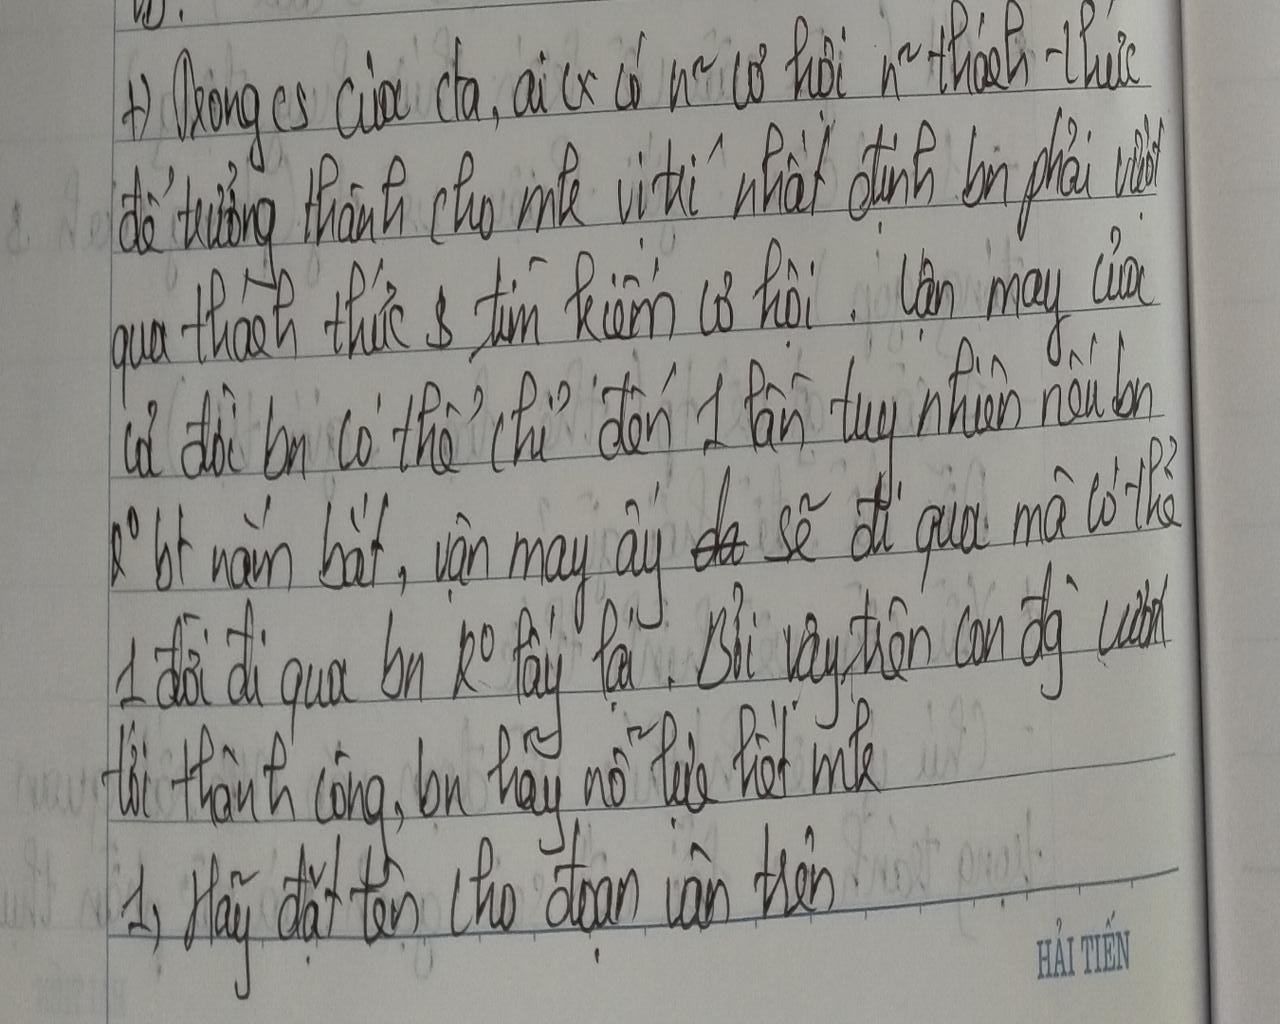 +) Trong cs của cta, ai cx có n~ cơ hội n~ thách thức
để trưởng thành cho mk vì thế nhất định bn phải vượt
qua thách thức & tìm kiếm cơ hội. Vận may của
cả đời bn có thể chỉ đến 1 lần tuy nhiên nếu bn
k° bt nắm bắt, vận may ấy sẽ đi qua mà có thể
1 đời đi qua bn k° lấy lại. Bởi vậy, trên con đg
tới thành công, bn hãy nỗ lực hết mk
1, Hãy đặt tên cho đoạn văn trên
HẢI TIẾN